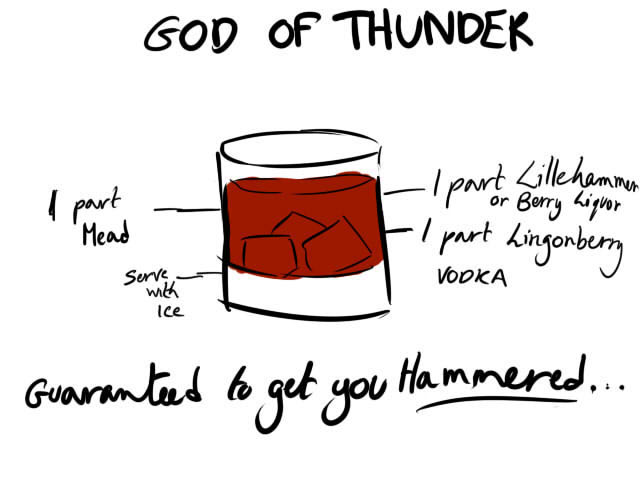 GOD OF THUNDER
1 part
Mead
Serve
with
ICE
1 part Lillehammer
or Berry Liquor
1 part Lingonberry
VODKA
Guaranteed to get you Hammered...